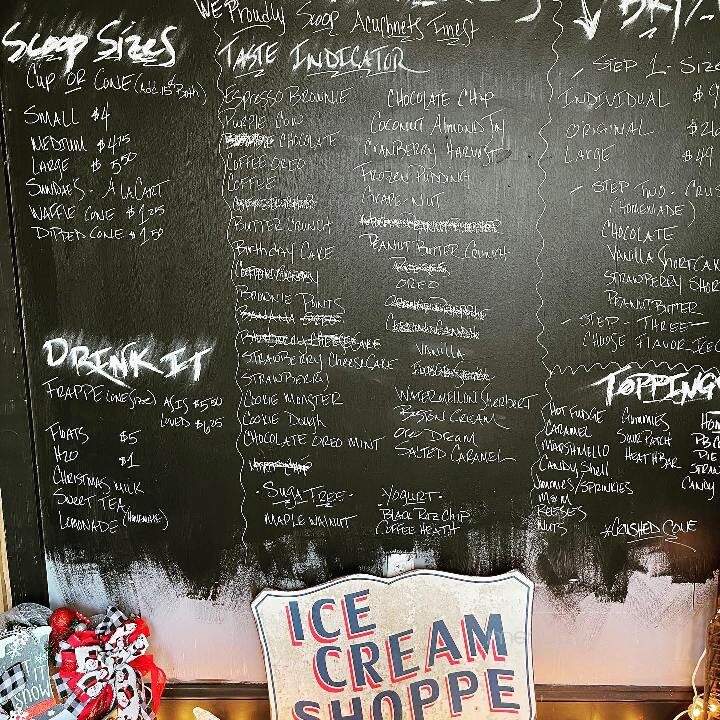 We Proudly Scoop Acushnets Finest
Scoop Sizes
Cup or Cone
Small $4
Medium $4.75
Large $5.50
Sundaes - A La Cart
Waffle Cone $1.25
Dipped Cone $1.50
Drink It
Frappe (one size) As is $5.50
Floats $5
H2O $1
Christmas Milk
Sweet Tea
Lemonade (Homemade)
Taste Indicator
Espresso Brownie
Purple Cow
Chocolate
Coffee Oreo
Coffee
Butter Crunch
Birthday Cake
Brownie
Strawberry Cheesecake
Strawberry
Cookie Monster
Cookie Dough
Chocolate Oreo Mint
- Suga Tree -
Maple Walnut
Chocolate Chip
Coconut Almond
Cranberry Harvest
Frozen Pudding
Grape-Nut
Peanut Butter Crunch
Oreo
Vanilla
Watermelon Sherbert
Boston Cream
Oreo Dream
Salted Caramel
Yogurt -
Black Raz Chip
Coffee Heath
- Step 1 - Size
Individual
Original
Large
- Step Two - Cru
(Homemade)
Chocolate
Vanilla Shortcak
Strawberry Shor
Peanut Butter
- Step - Three -
Choose Flavor - Ice C
Topping
Hot Fudge
Caramel
Marshmello
Candy Shell
Jimmies/Sprinkles
M&M
Reeses
Nuts
Gummies
Sour Patch
Heath Bar
*Crushed Cone
ICE
CREAM
SHOPPE